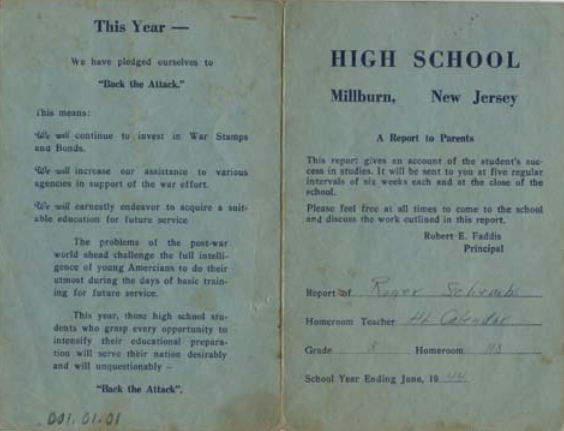 This Year —
We have pledged ourselves to
"Back the Attack."
This means:
We will continue to invest in War Stamps
and Bonds.
We will increase our assistance to various
agencies in support of the war effort.
We will earnestly endeavor to acquire a suit-
able education for future service
The problems of the post-war
world ahead challenge the full intelli-
gence of young Amercians to do their
utmost during the days of basic train-
ing for future service.
This year, those high school stu-
dents who grasp every opportunity to
intensify their educational prepara-
tion will serve their nation desirably
and will unquestionably –
"Back the Attack".
001.01.01
HIGH SCHOOL
Millburn, New Jersey
A Report to Parents
This report gives an account of the student's suc-
cess in studies. It will be sent to you at five regular
intervals of six weeks each and at the close of the
school.
Please feel free at all times to come to the school
and discuss the work outlined in this report.
Robert E. Faddis
Principal
Report of Roger
Homeroom Teacher
Grade Homeroom
School Year Ending June, 19 44